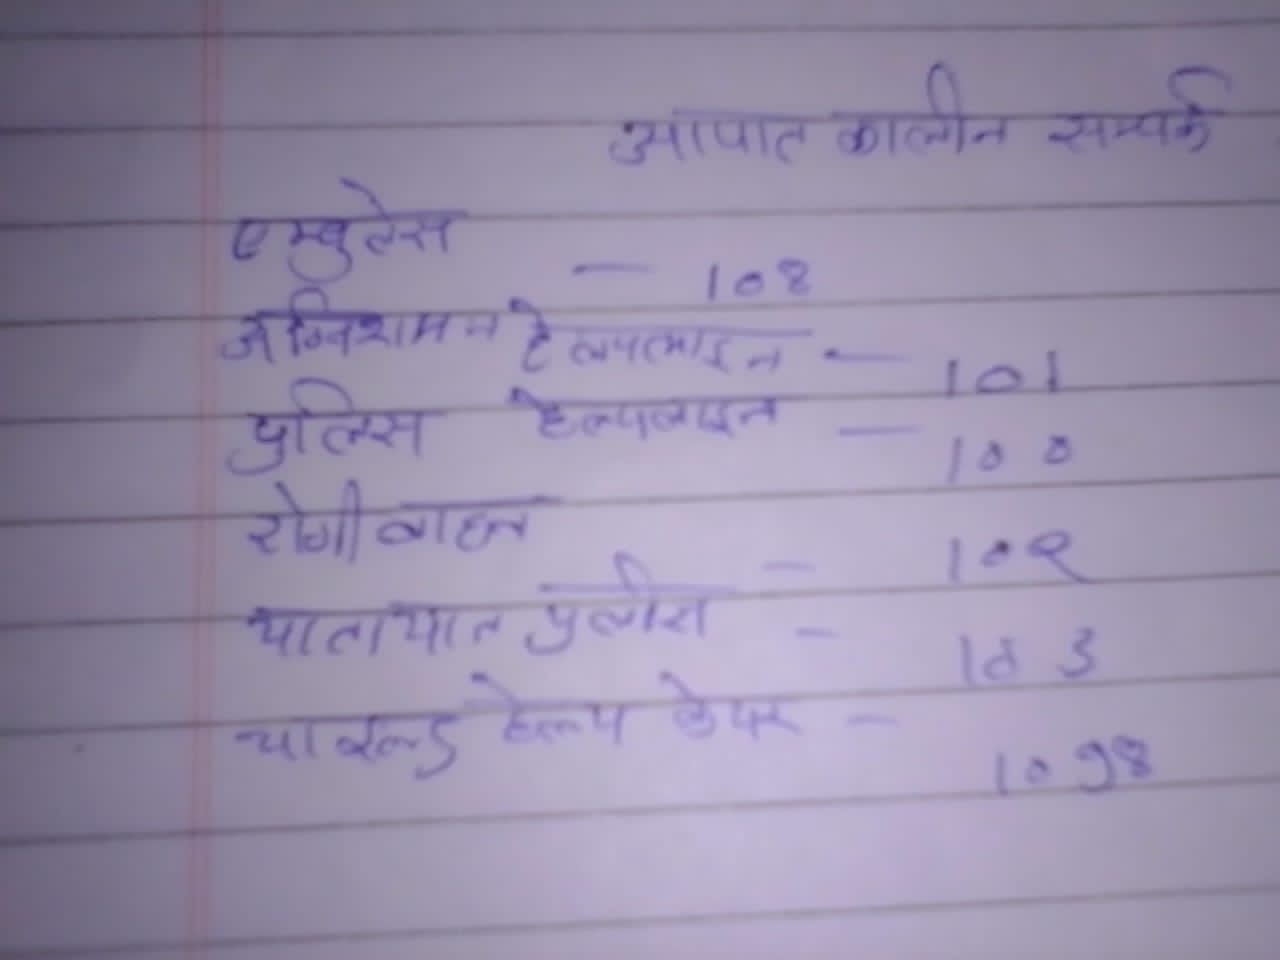 आपात कालीन सम्पर्क
एम्बुलेस — 108
अग्निशमन हेल्पलाइन — 101
पुलिस हेल्पलाइन — 100
रोगी वाहन — 102
यातायात पुलीस — 103
चाइल्ड हेल्प केयर — 1098